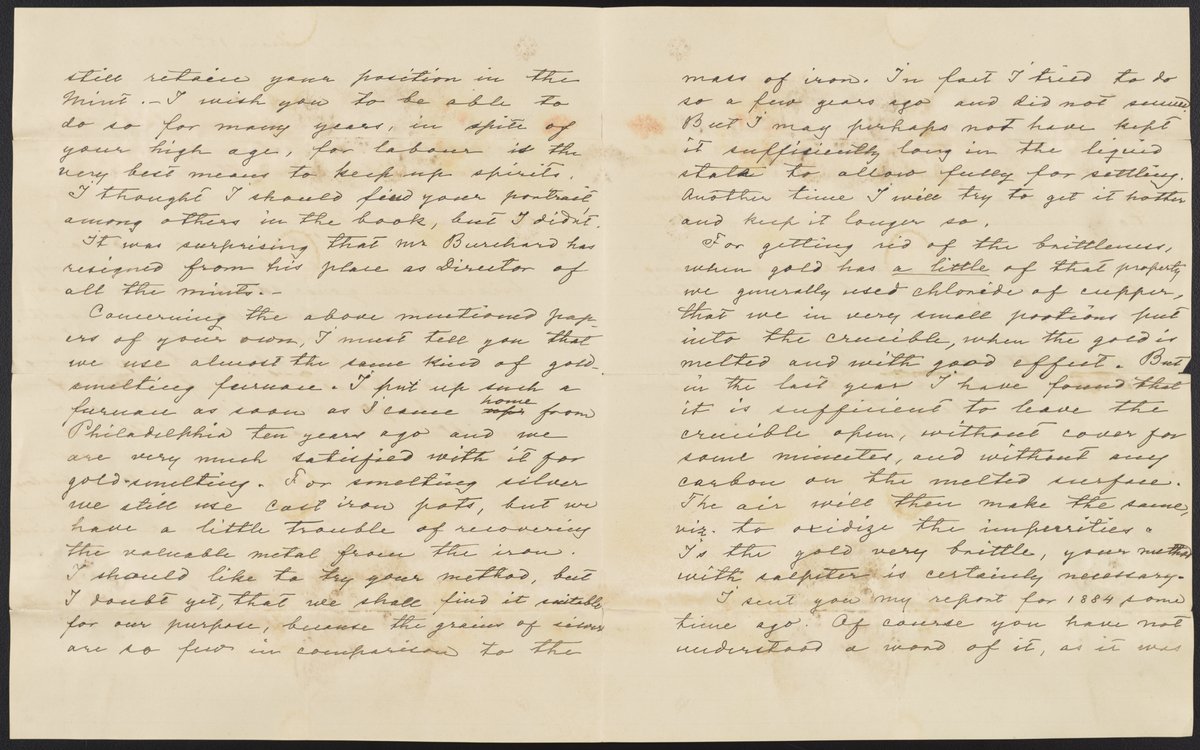 still retain your position in the
Mint. – I wish you to be able to
do so for many years, in spite of
your high age, for labour is the
very best means to keep up spirits.
I thought I should find your portrait
among others in the book, but I didn't.
It was surprising that mr Burchard has
resigned from his place as Director of
all the mints. –
Concerning the above mentioned pap-
ers of your own, I must tell you that
we use almost the same kind of gold-
smelting furnace. I put up such a
furnace as soon as I came home from
Philadelphia ten years ago and we
are very much satisfied with it for
gold-smelting. For smelting silver
we still use cast iron pots, but we
have a little trouble of recovering
the valuable metal from the iron.
I should like to try your method, but
I doubt yet, that we shall find it suitable
for our purpose, because the grains of silver
are so few in comparison to the
mass of iron. In fact I tried to do
so a few years ago and did not succeed
But I may perhaps not have kept
it sufficiently long in the liquid
state to allow fully for settling.
Another time I will try to get it hotter
and keep it longer so.
For getting rid of the brittleness,
when gold has a little of that property
we generally used chloride of cupper,
that we in very small portions put
into the crucible, when the gold is
melted and with good effect. But
in the last year I have found that
it is sufficient to leave the
crucible open, without cover for
some minutes, and without any
carbon on the melted surface.
The air will then make the same,
viz. to oxidize the imperrities.
Is the gold very brittle, your method
with salpiter is certainly necessary.
I sent you my report for 1884 some
time ago. Of course you have not
understood a word of it, as it was